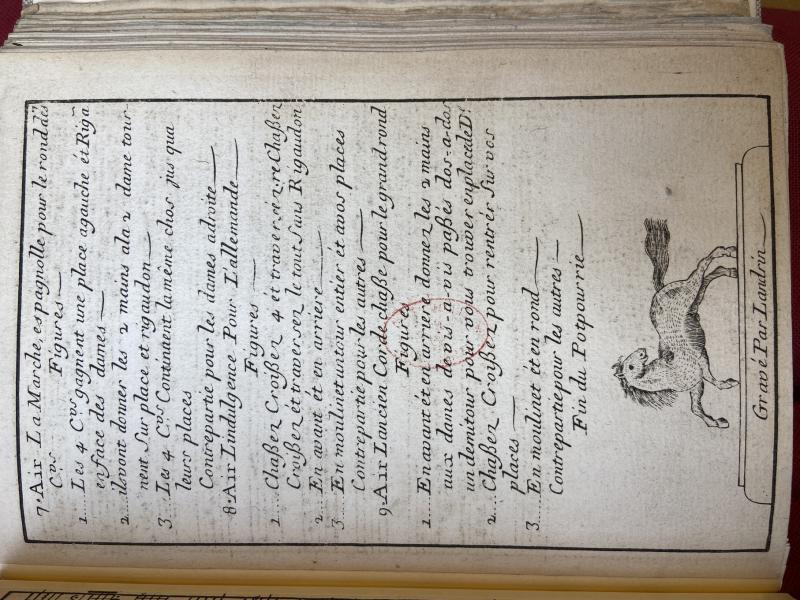 7. Air La Marche, espagnolle pour le rond des
Cvs Figures
1... Les 4 Cvs gagnent une place agauche ét Riga
enface des dames
2... devont donner les 2 mains ala 2 dame tour-
nent Sur place et rigaudon
3... Les 4 Cvs Continuent la même chos jus qua
leurs places
Contrepartie pour les dames adroite
8. Air Lindulgence Pour L'allemande
Figures
1... Chaßez Croißez 4 et traverséz re Chaßez
Croißez ét traversez le tout Sans Rigaudon
2... En avant ét en arriere
3... En moulinet un tour entier ét avos places
Contrepartie pour les autres
9. Air Lancien Cor de chaße pour le grand rond
Figures
1... En avant ét en arriere donnez les 2 mains
aux dames de vis-a-vis paßés dos-a-dos
un demitour pour vous trouver enplace de D.
2... Chaßez Croißez pour rentrér Sur vos
places
3... En moulinet ét en rond
Contrepartie pour les autres
Fin du Potpourrie
Gravé Par Landrin